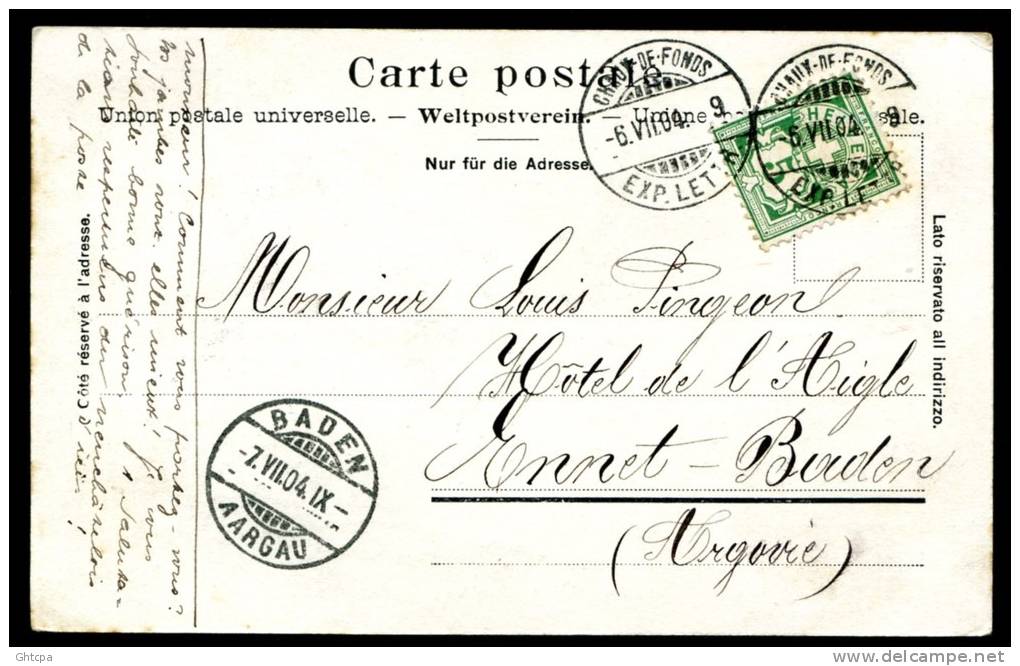 Carte postale
Union postale universelle. — Weltpostverein. — Unione postale
Nur für die Adresse.
Côté réservé à l'adresse.
Lato riservato all indirizzo.
CHAUX-DE-FONDS
-6.VII.04. 9
EXP. LETT
CHAUX-DE-FONDS
-6.VII.04. 9
EXP. LETT
HE
Monsieur Louis Pingeon
Hôtel de l'Aigle
Ennet-Baden
(Argovie)
BADEN
-7.VII.04.IX-
AARGAU
Monsieur! Comment vous portez-vous?
Vos jambes vont elles mieux? Je vous
bonne guérison. 1 saluta-
respectueuse du neuchâtelois
de la
Ghtcpa
delcampe.net